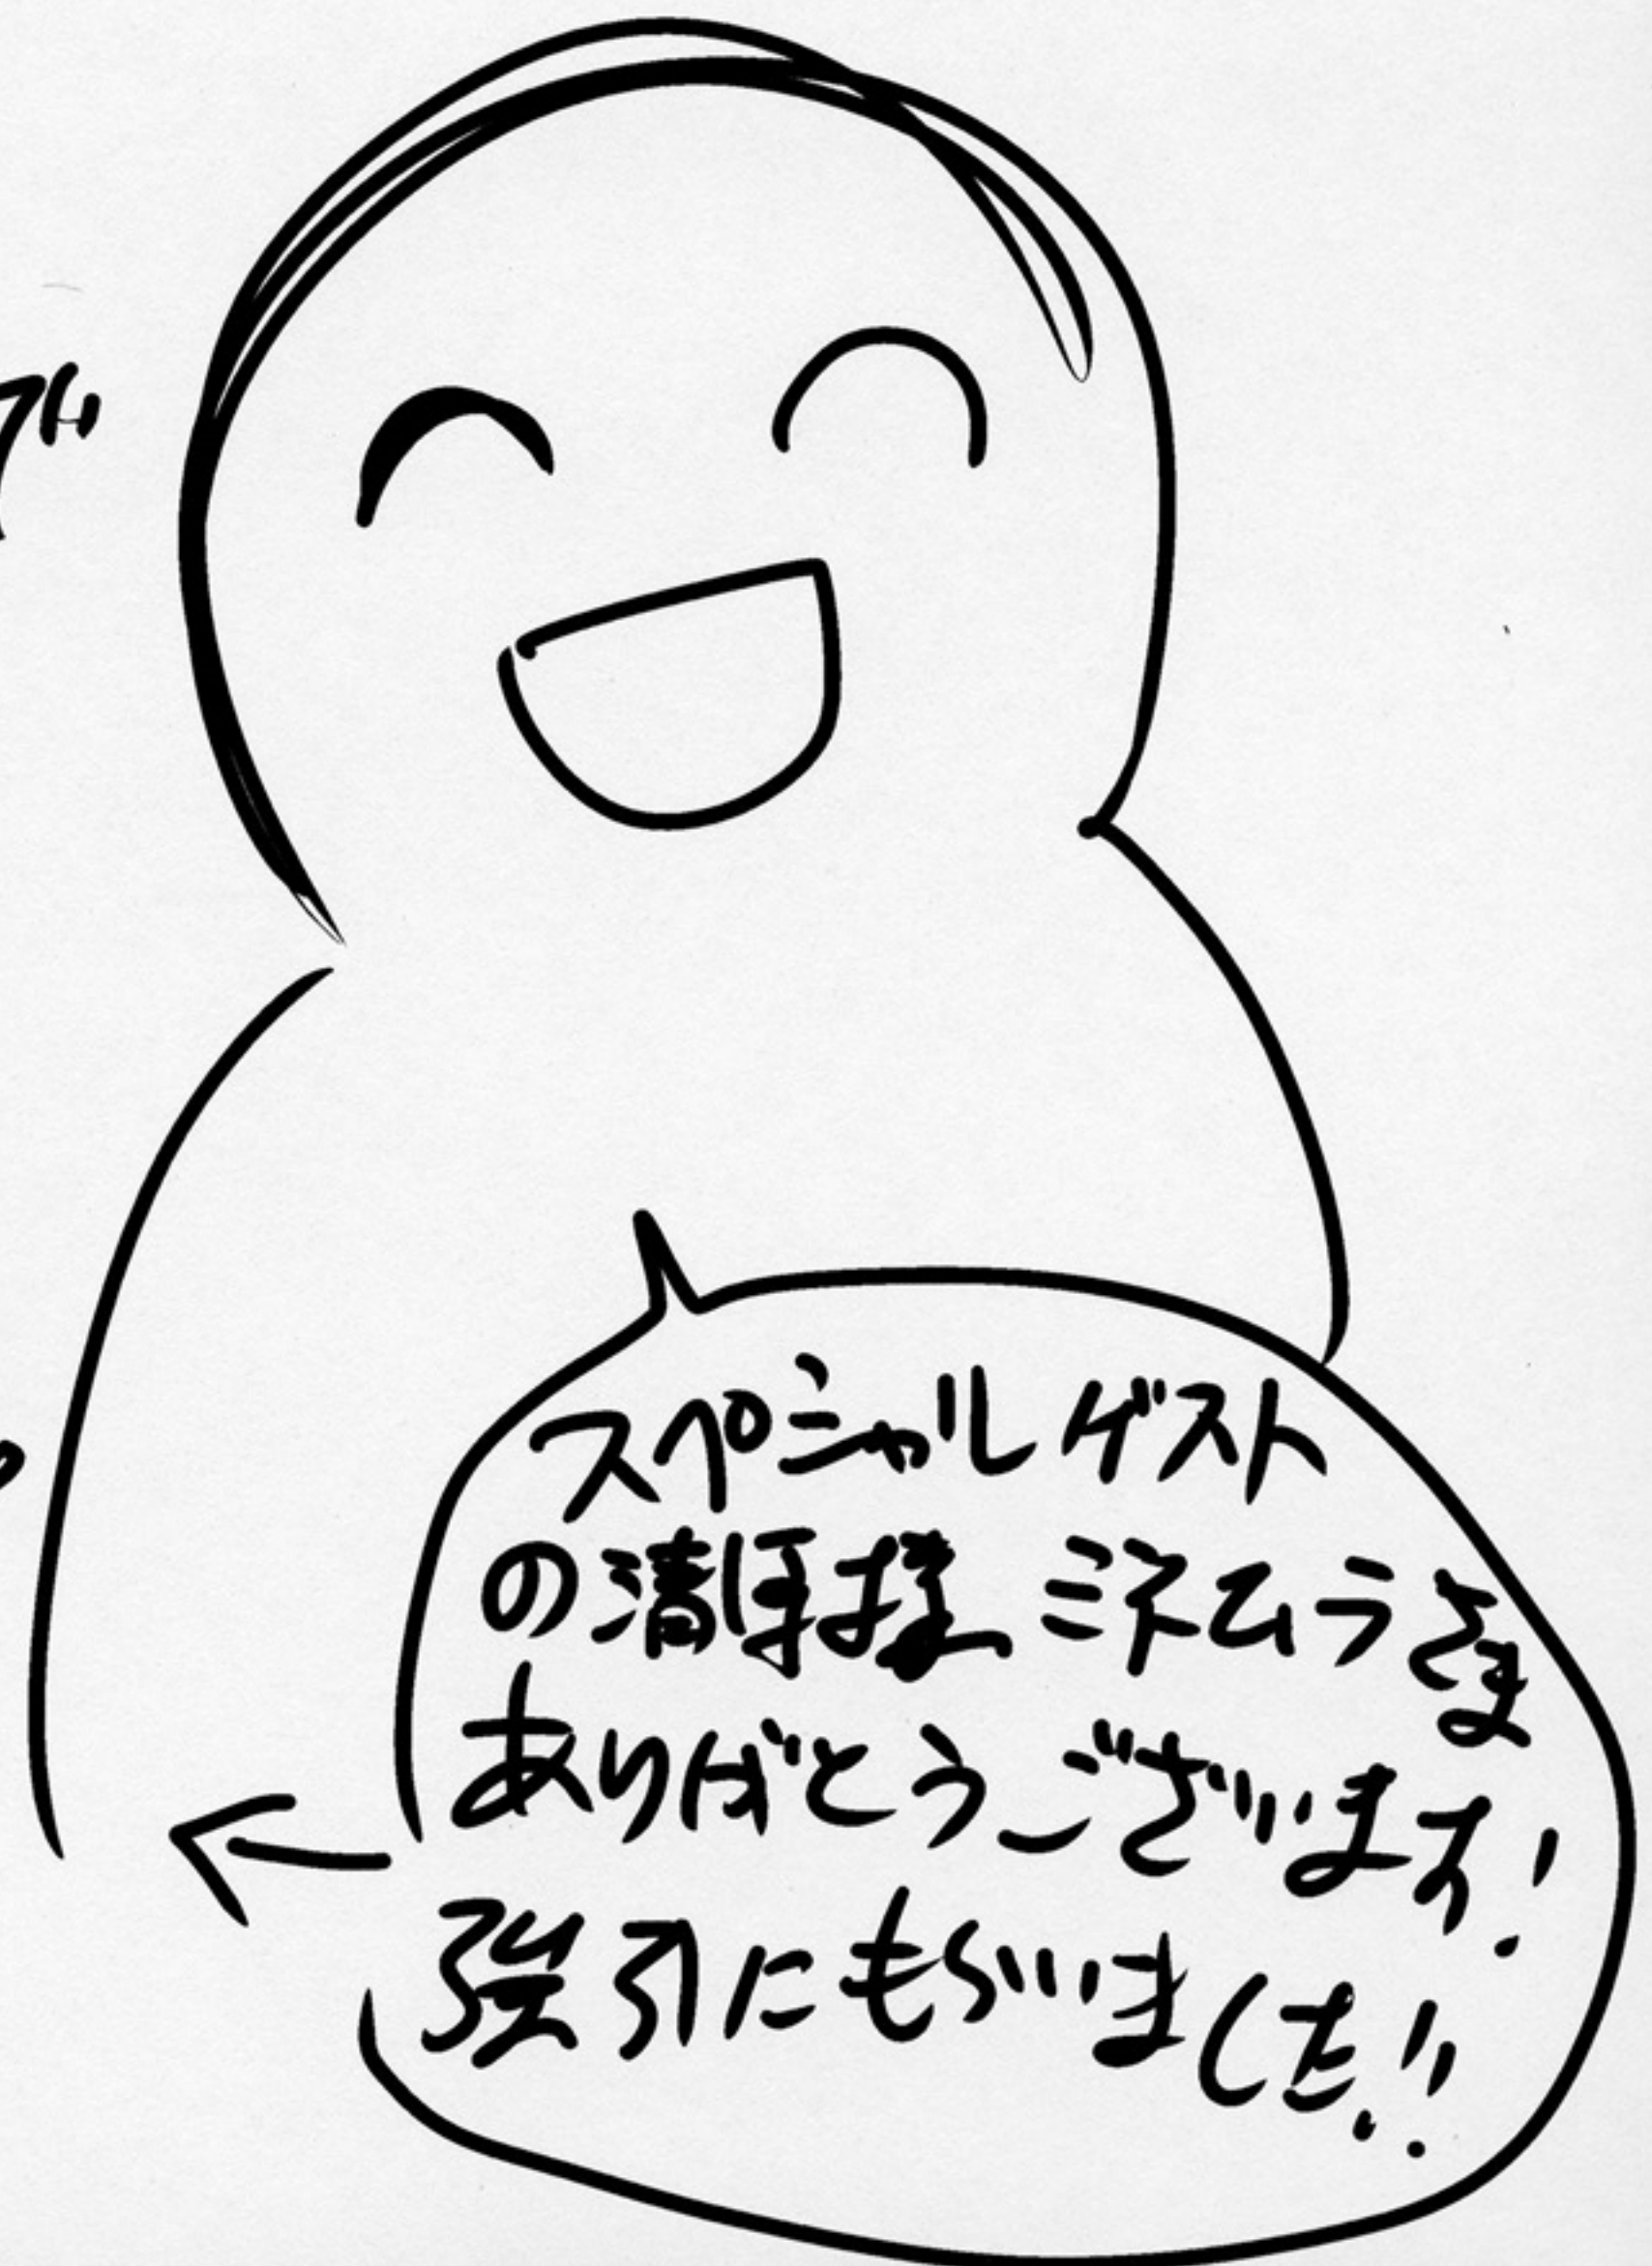 スペシャルゲスト
の清孚様 ミネムラさま
ありがとうございます!
強引にもらいました!!